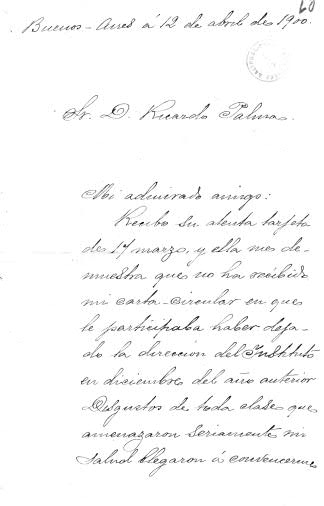 60
Buenos-Aires á 12 de abril de 1900.
Sr. D. Ricardo Palma.
Mi admirado amigo:
Recibo su atenta tarjeta
de 17 marzo, y ella me de-
muestra que no ha recibido
mi carta-circular en que
le participaba haber deja-
do la direccion del Instituto
en diciembre del año anterior
Disgustos de toda clase que
amenazaron seriamente mi
salud llegaron á convencerme